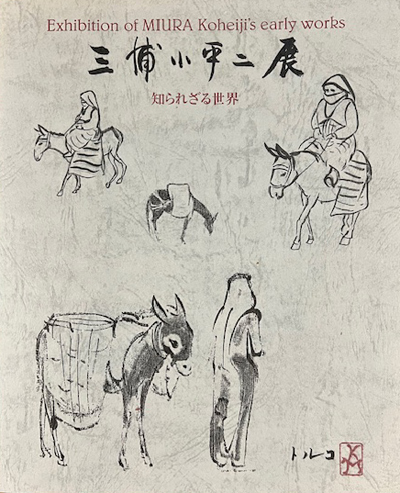 Exhibition of MIURA Koheiji's early works
三浦小平二展
知られざる世界
トルコ